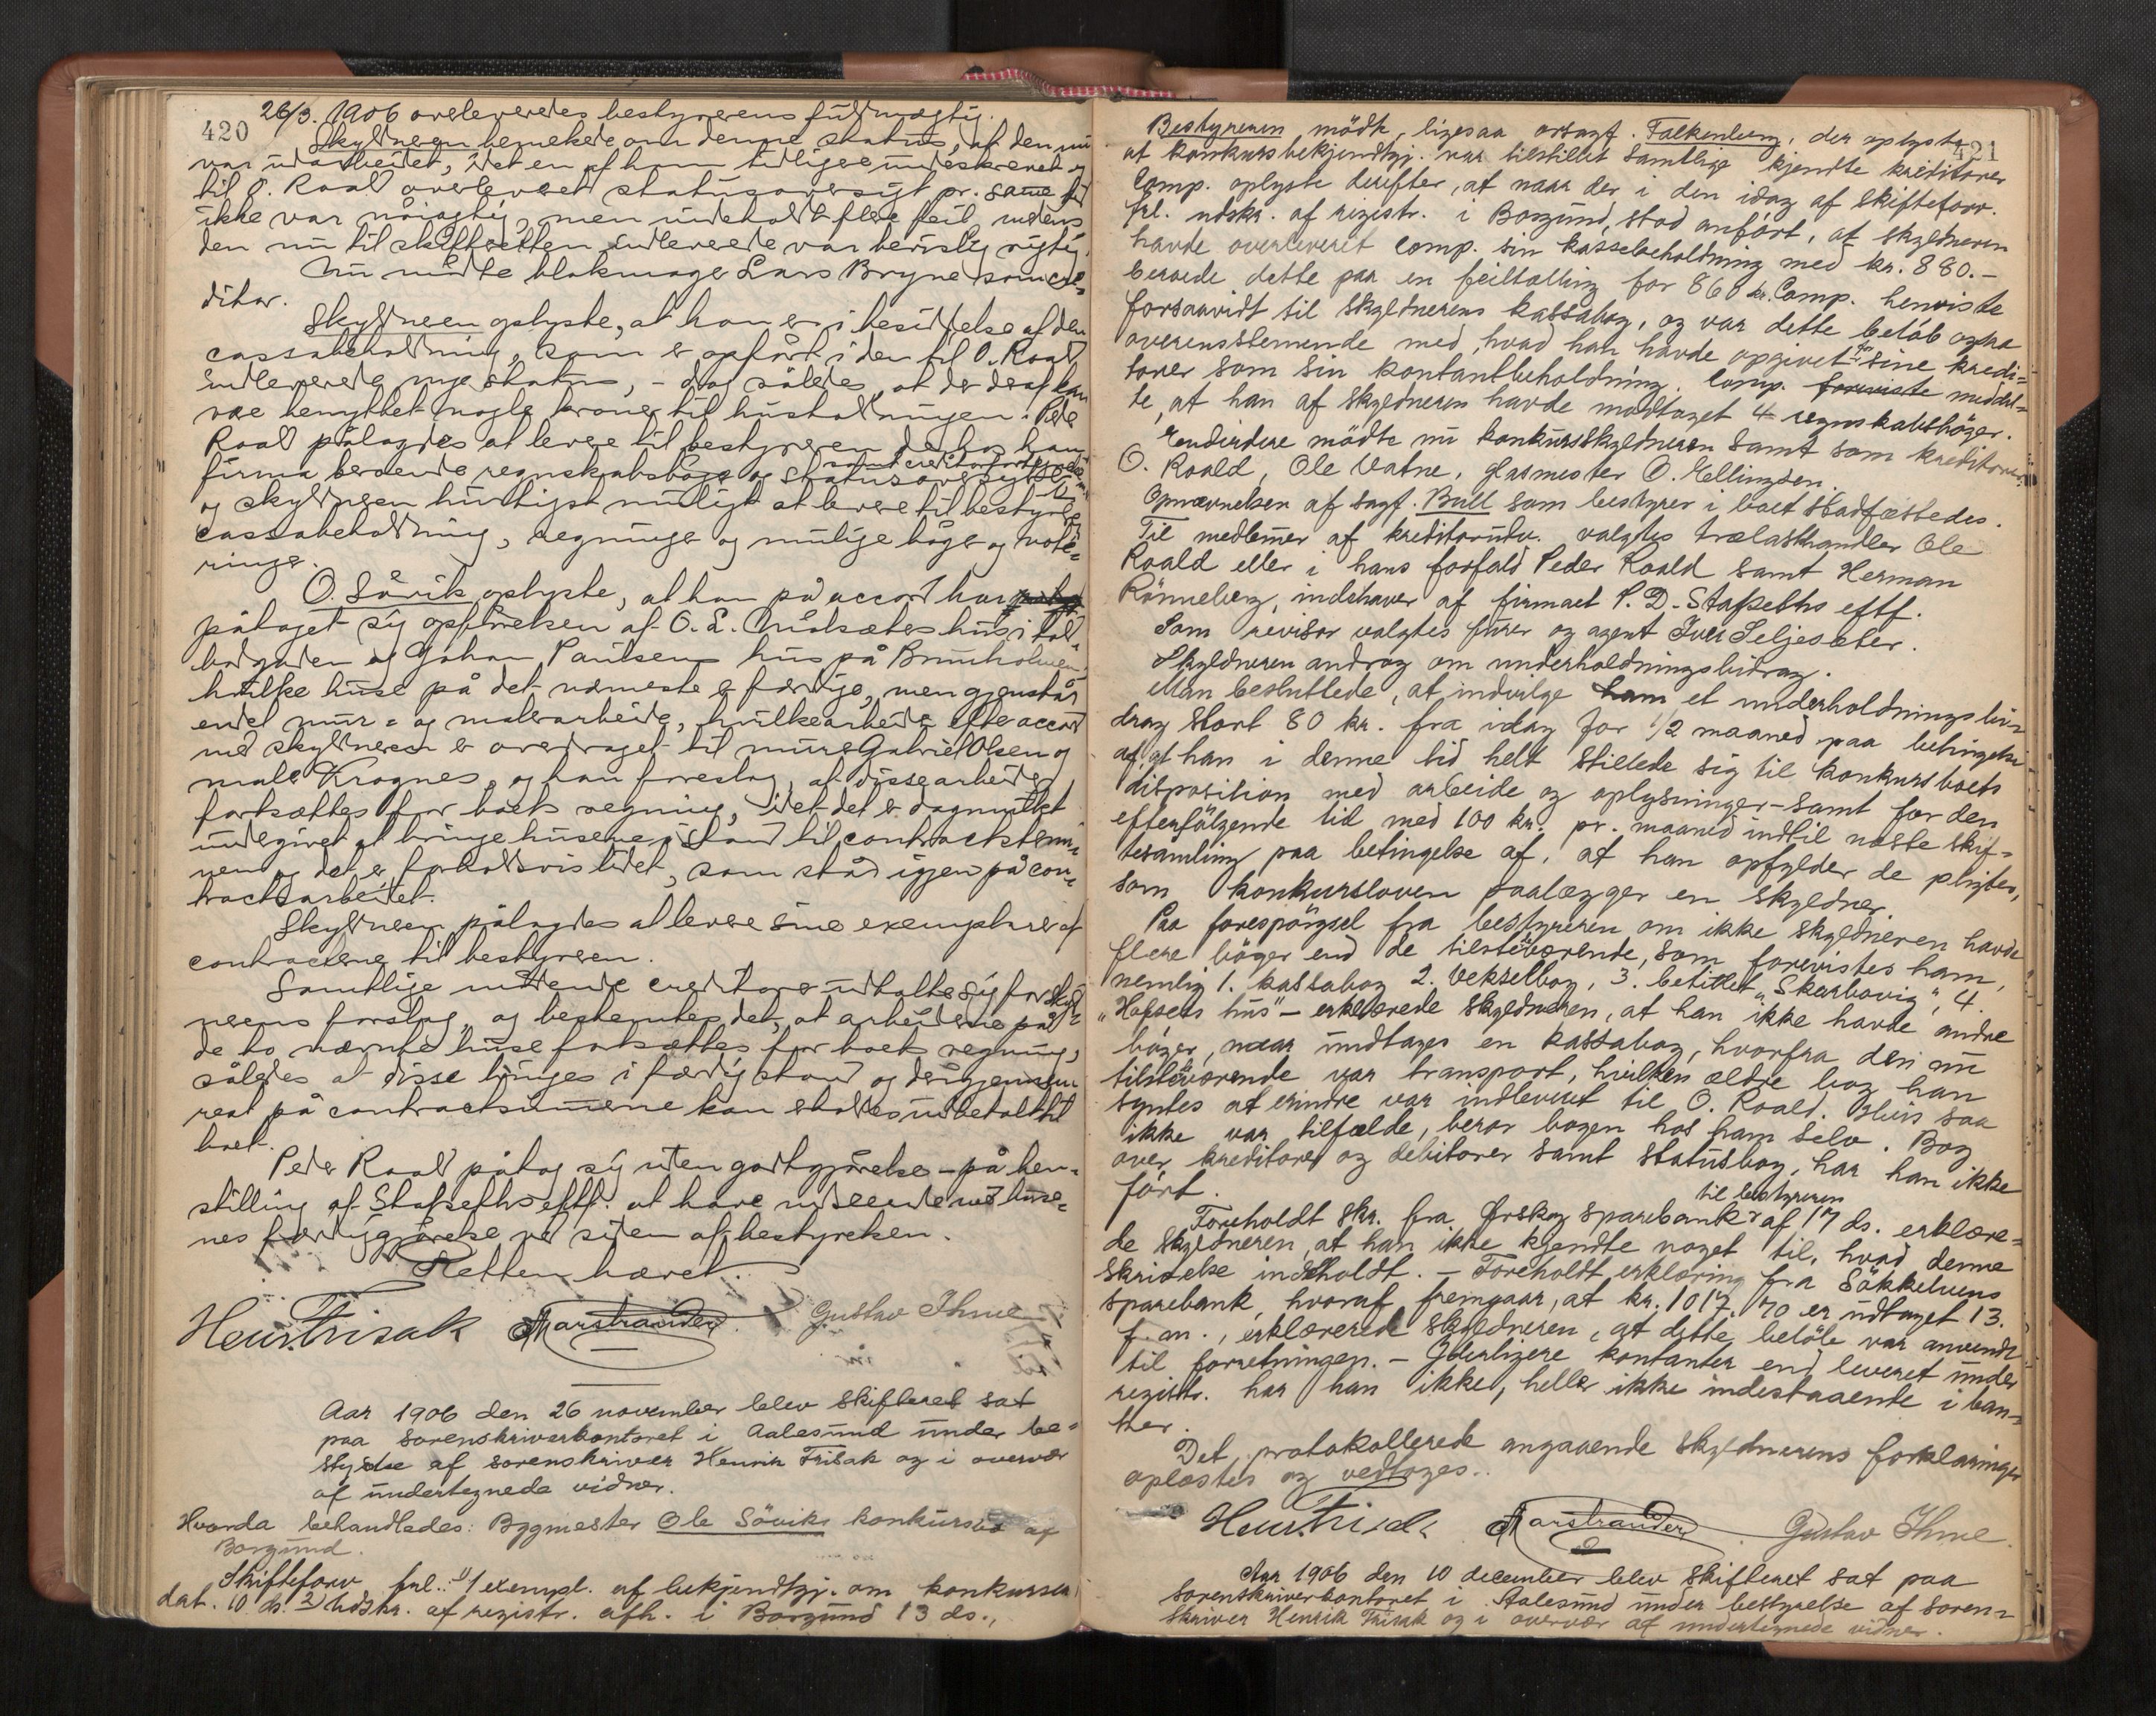 420
26/3. 1906 overleveredes bestyrerens fuldmægtig.
Skyldneren bemerkede om denne status, at den nu
var udarbeidet, idet en af ham tidligere underskrevet og
til O. Roald overleveret statusoversigt pr. samme tid
ikke var nöiagtig, men indeholdt flere feil, medens
den nu til skifteretten indleverede var rigtig.
Nu mödte blokmager Lars Bryne som cre-
ditor.
Skyldneren oplyste, at han er i besiddelse af den
cassabeholdning, som er opfört i den til O. Roald
indleverede nye status, - dog således, at der deraf kan
være benyttet nogle kroner til husholdningen. Peder
Roald pålagdes at levere til bestyreren de hos hans
firma beroende regnskabsböger og statusoversigter
og skyldneren hurtigst muligt at levere til bestyreren
cassabeholdning, regninger og mulige böger og note-
ringer.
O. Sövik oplyste, at han på accord har
påtaget sig opförelsen af O. L. hus i told
bodgaden og Johan Paulsens hus på Brunholmen,
hvilke huse på det nærmeste er færdige, men gjenstår
endel mur- og malerarbeide, hvilke arbeider efter accord
med skyldneren er overdraget til murer Gabriel Olsen og
maler Krognes, og han foreslog, at disse arbeider
fortsættes for boets regning, idet det er
at bringe husene i stand til contractstermi-
nen og det er forholdsvis lidet, som står igjen på con-
tractsarbeidet.
Skyldneren pålagdes at levere sine exemplarer af
contracterne til bestyreren.
Samtlige mödende creditorer udtalte sig for skyld-
nerens forslag, og bestemtes det, at arbeiderne på
de to nævnte huse fortsættes for boets regning,
således at disse bringes i færdig stand og derigjennem
rest på contractsummerne kan erholdes udbetalt til
boet.
Peder Roald påtog sig uten godtgjörelse - på hen-
stilling af Stafseths eftf. at have indseende med huse-
nes færdiggjörelse ved siden af bestyrelsen.
Retten hævet.
Henr. Frisak Marstrander. Gustav Ihme
Aar 1906 den 26 november blev skifteret sat
paa sorenskriverkontoret i Aalesund under be-
styrelse af sorenskriver Henrik Frisak og i overvær
af undertegnede vidner.
Hvorda behandledes: Bygmester Ole Söviks konkursbo af
Borgund.
Skifteforv. frl.: 1) 1 exempl. af bekjendtgj. om konkursen
dat. 10 ds. 2) Udskr. af registr. afh. i Borgund 13 ds.,
421
Bestyreren mödte, ligesaa orsagf. Falkenberg, der oplyste
at konkursbekjendtgj. var tilstillet samtlige kjendte kreditorer
Comp. oplyste derefter, at naar der i den idag af skifteforv.
frl. udskr. af registr. i Borgund, stod anfört, at skyldneren
havde overleveret comp. sin kassebeholdning med kr. 880.-
beroede dette paa en feiltælling for 860 kr. Comp. henviste
forsaavidt til skyldnerens kassabog, og var dette belöb ogsaa
overensstemmende med, hvad han havde opgivet for sine kredi-
torer som sin kontantbeholdning. Comp. foreviste meddel-
te, at han af skyldneren havde modtaget 4 regnskabsböger.
Endvidere mödte nu konkursskyldneren samt som kreditorer
O. Roald, Ole Vatne, glasmester O. Ellingsen.
Opnævnelsen af sagf. Bull som bestyrer i boet stadfæstedes.
Til medlemmer af kreditorudv. valgtes trælasthandler Ole
Roald eller i hans forfald Peder Roald samt Herman
Rönneberg, indehaver af firmaet P. D. Stafseths eftf.
Som revisor valgtes furer og agent Iver Seljesæter.
Skyldneren androg om underholdningsbidrag.
Man besluttede, at indvilge ham et underholdningsbi-
drag stort 80 kr. fra idag for 1/2 maaned paa betingelse
af, at han i denne tid helt stillede sig til konkursboets
disposition med arbeide og oplysninger - samt for den
efterfölgende tid med 100 kr. pr. maaned indtil næste skif-
tesamling paa betingelse af, at han opfylder de pligter,
som konkursloven paalægger en skyldner.
Paa forespörgsel fra bestyreren om ikke skyldneren havde
flere böger end de tilstedeværende, som forevistes ham,
nemlig 1. kassabog 2. Vekselbog, 3. betitlet "Skarbövig", 4.
"Hofseths hus" - erklærede skyldneren, at han ikke havde andre
böger, naar undtages en kassabog, hvorfra den nu
tilstedeværende var transport, hvilken ældre bog han
syntes at erindre var indleveret til O. Roald. Hvis saa
ikke var tilfælde, beror bogen hos ham selv. Bog
over kreditorer og debitorer samt statusbog, har han ikke
fört.
Foreholdt skr. fra Ørskog sparebank til bestyreren af 17 ds. erklære-
de skyldneren, at han ikke kjendte noget til, hvad denne
skrivelse indeholdt. - Foreholdt erklæring fra Sökkelvens
sparebank, hvoraf fremgaar, at kr. 1017.70 er udtaget 13.
f. m., erklærede skyldneren, at dette belöb var anvendt
til forretningen. - Yderligere kontanter end leveret under
registr. har han ikke, heller ikke indestaaende i ban-
ker.
Det protokollerede angaaende skyldnerens forklaringer
oplæstes og vedtoges.
Henr. Frisak Marstrander. Gustav Ihme.
Aar 1906 den 10 december blev skifteret sat paa
sorenskriverkontoret i Aalesund under bestyrelse af soren-
skriver Henrik Frisak og i overvær af undertegnede vidner.